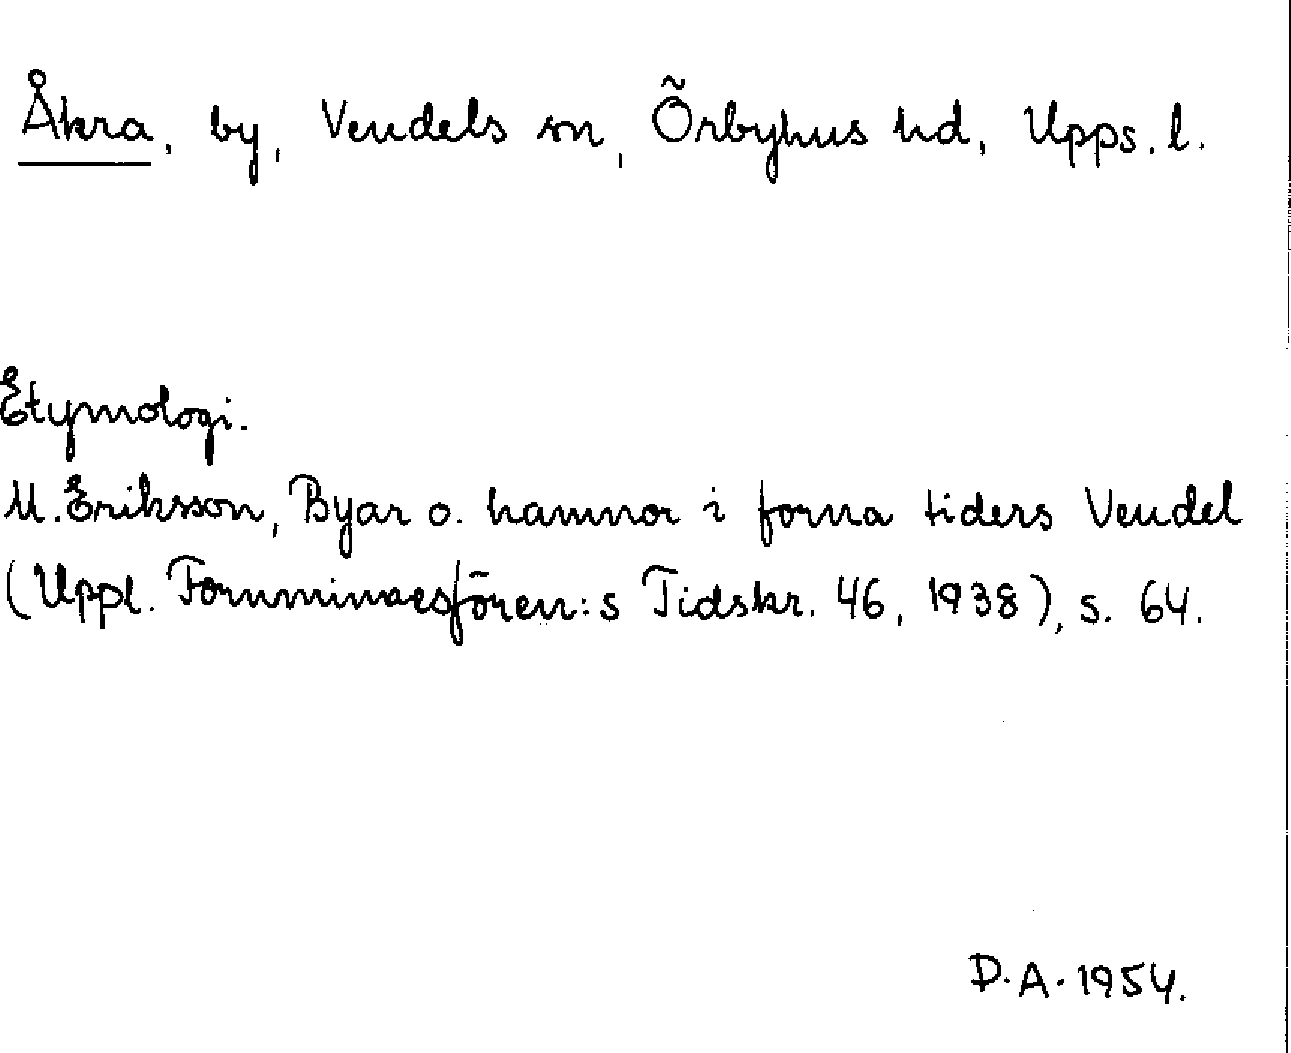 Åkra, by, Vendels sn, Örbyhus hd, Upps. l.
Etymologi.
M. Eriksson, Byar o. hamnor i forna tiders Vendel
(Uppl. Fornminnesfören:s Tidskr. 46, 1938), s. 64.
D.A. 1954.